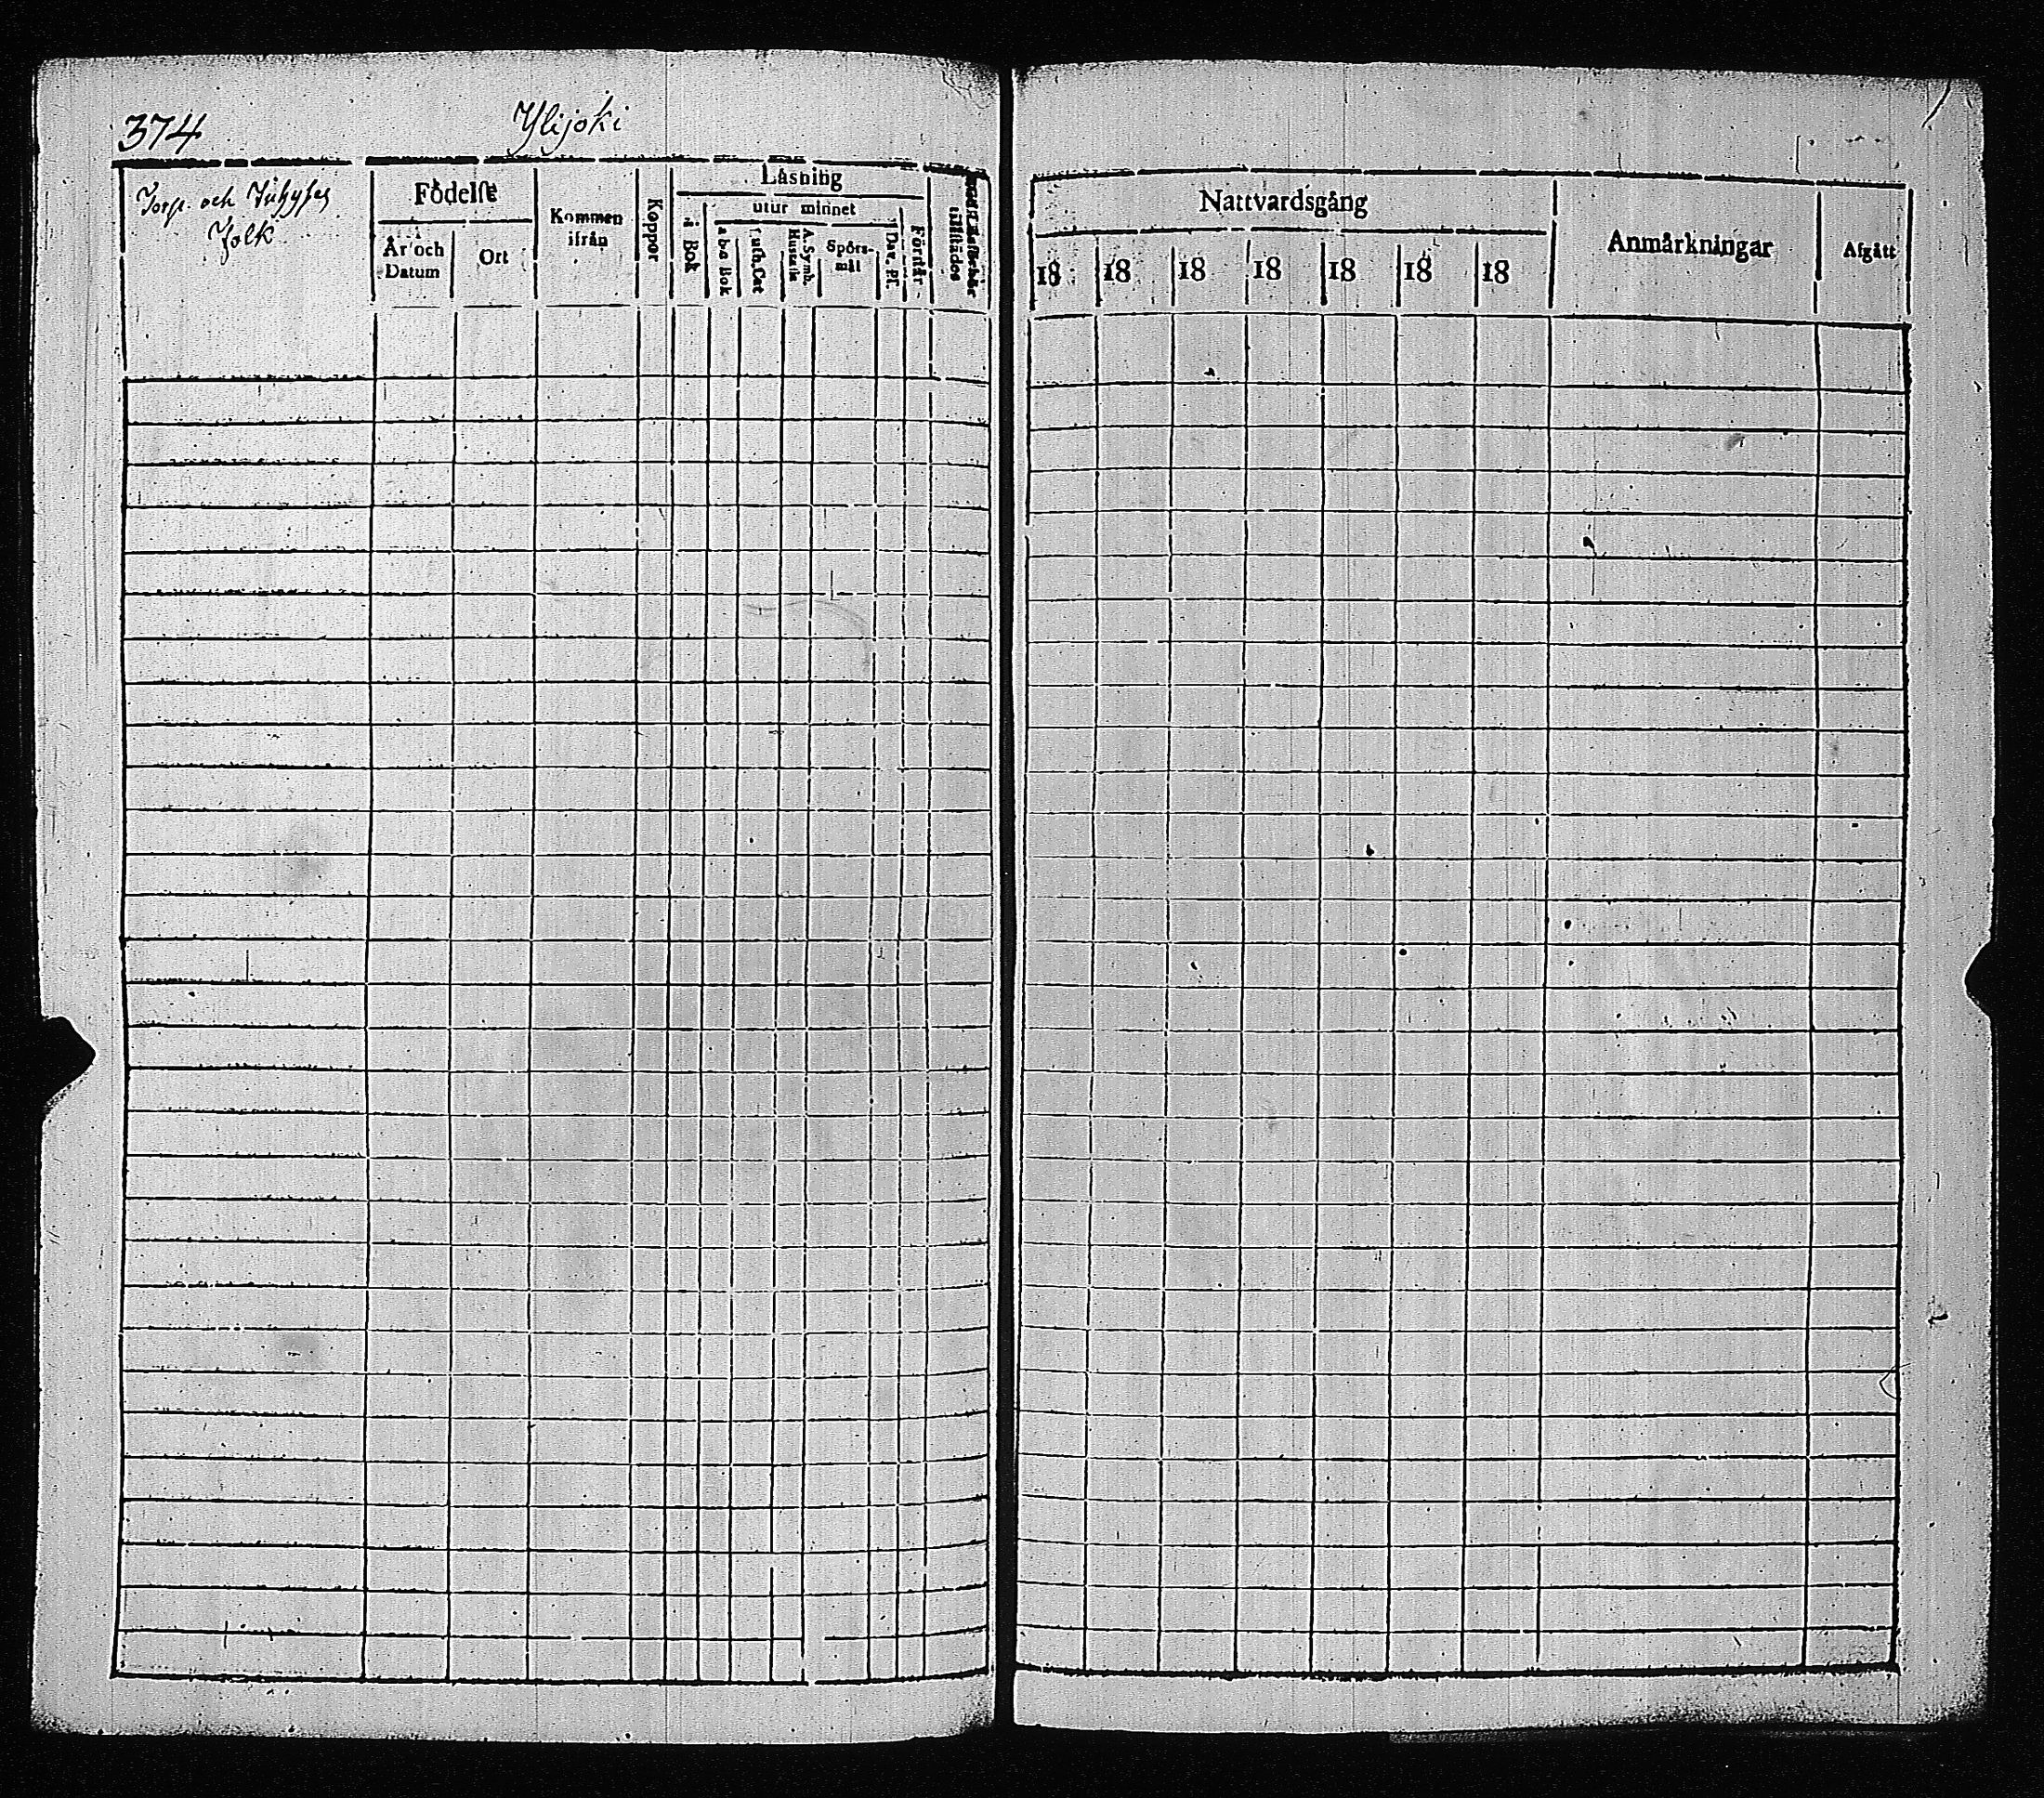 374
Ylijoki
Torp. och Inhyses
Folk
Födelse
År och
Datum
Ort
Kommen
ifrån
Koppor
Läsning
i Bok
utur minnet
a b c Bok
Luth. Cat
A. Symb.
Hustafla
Spörs-
mål
Dav. Ps.
Förstår
tillstädes
Nattvardsgång
18 18 18 18 18 18 18
Anmärkningar
Afgått